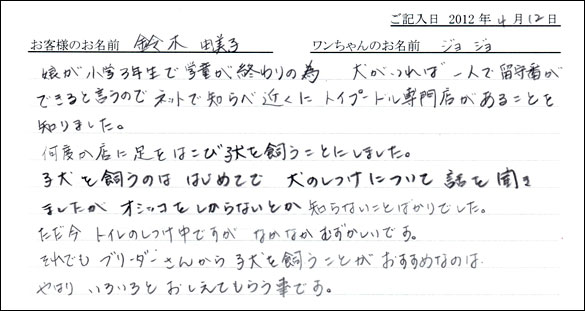 ご記入日 2012年4月12日
お客様のお名前 鈴木 由美子 ワンちゃんのお名前 ジョジョ
娘が小学3年生で学童が終わりの為 犬がいれば一人で留守番が
できると言うのでネットで知らべ近くにトイプードル専門店があることを
知りました。
何度か店に足をはこび子犬を飼うことにしました。
子犬を飼うのははじめてで 犬のしつけについて話を聞き
ましたがオシッコをしからないとか知らないことばかりでした。
ただ今 トイレのしつけ中ですが なかなかむずかしいです。
それでもブリーダーさんから子犬を飼うことがおすすめなのは
やはりいろいろとおしえてもらう事です。